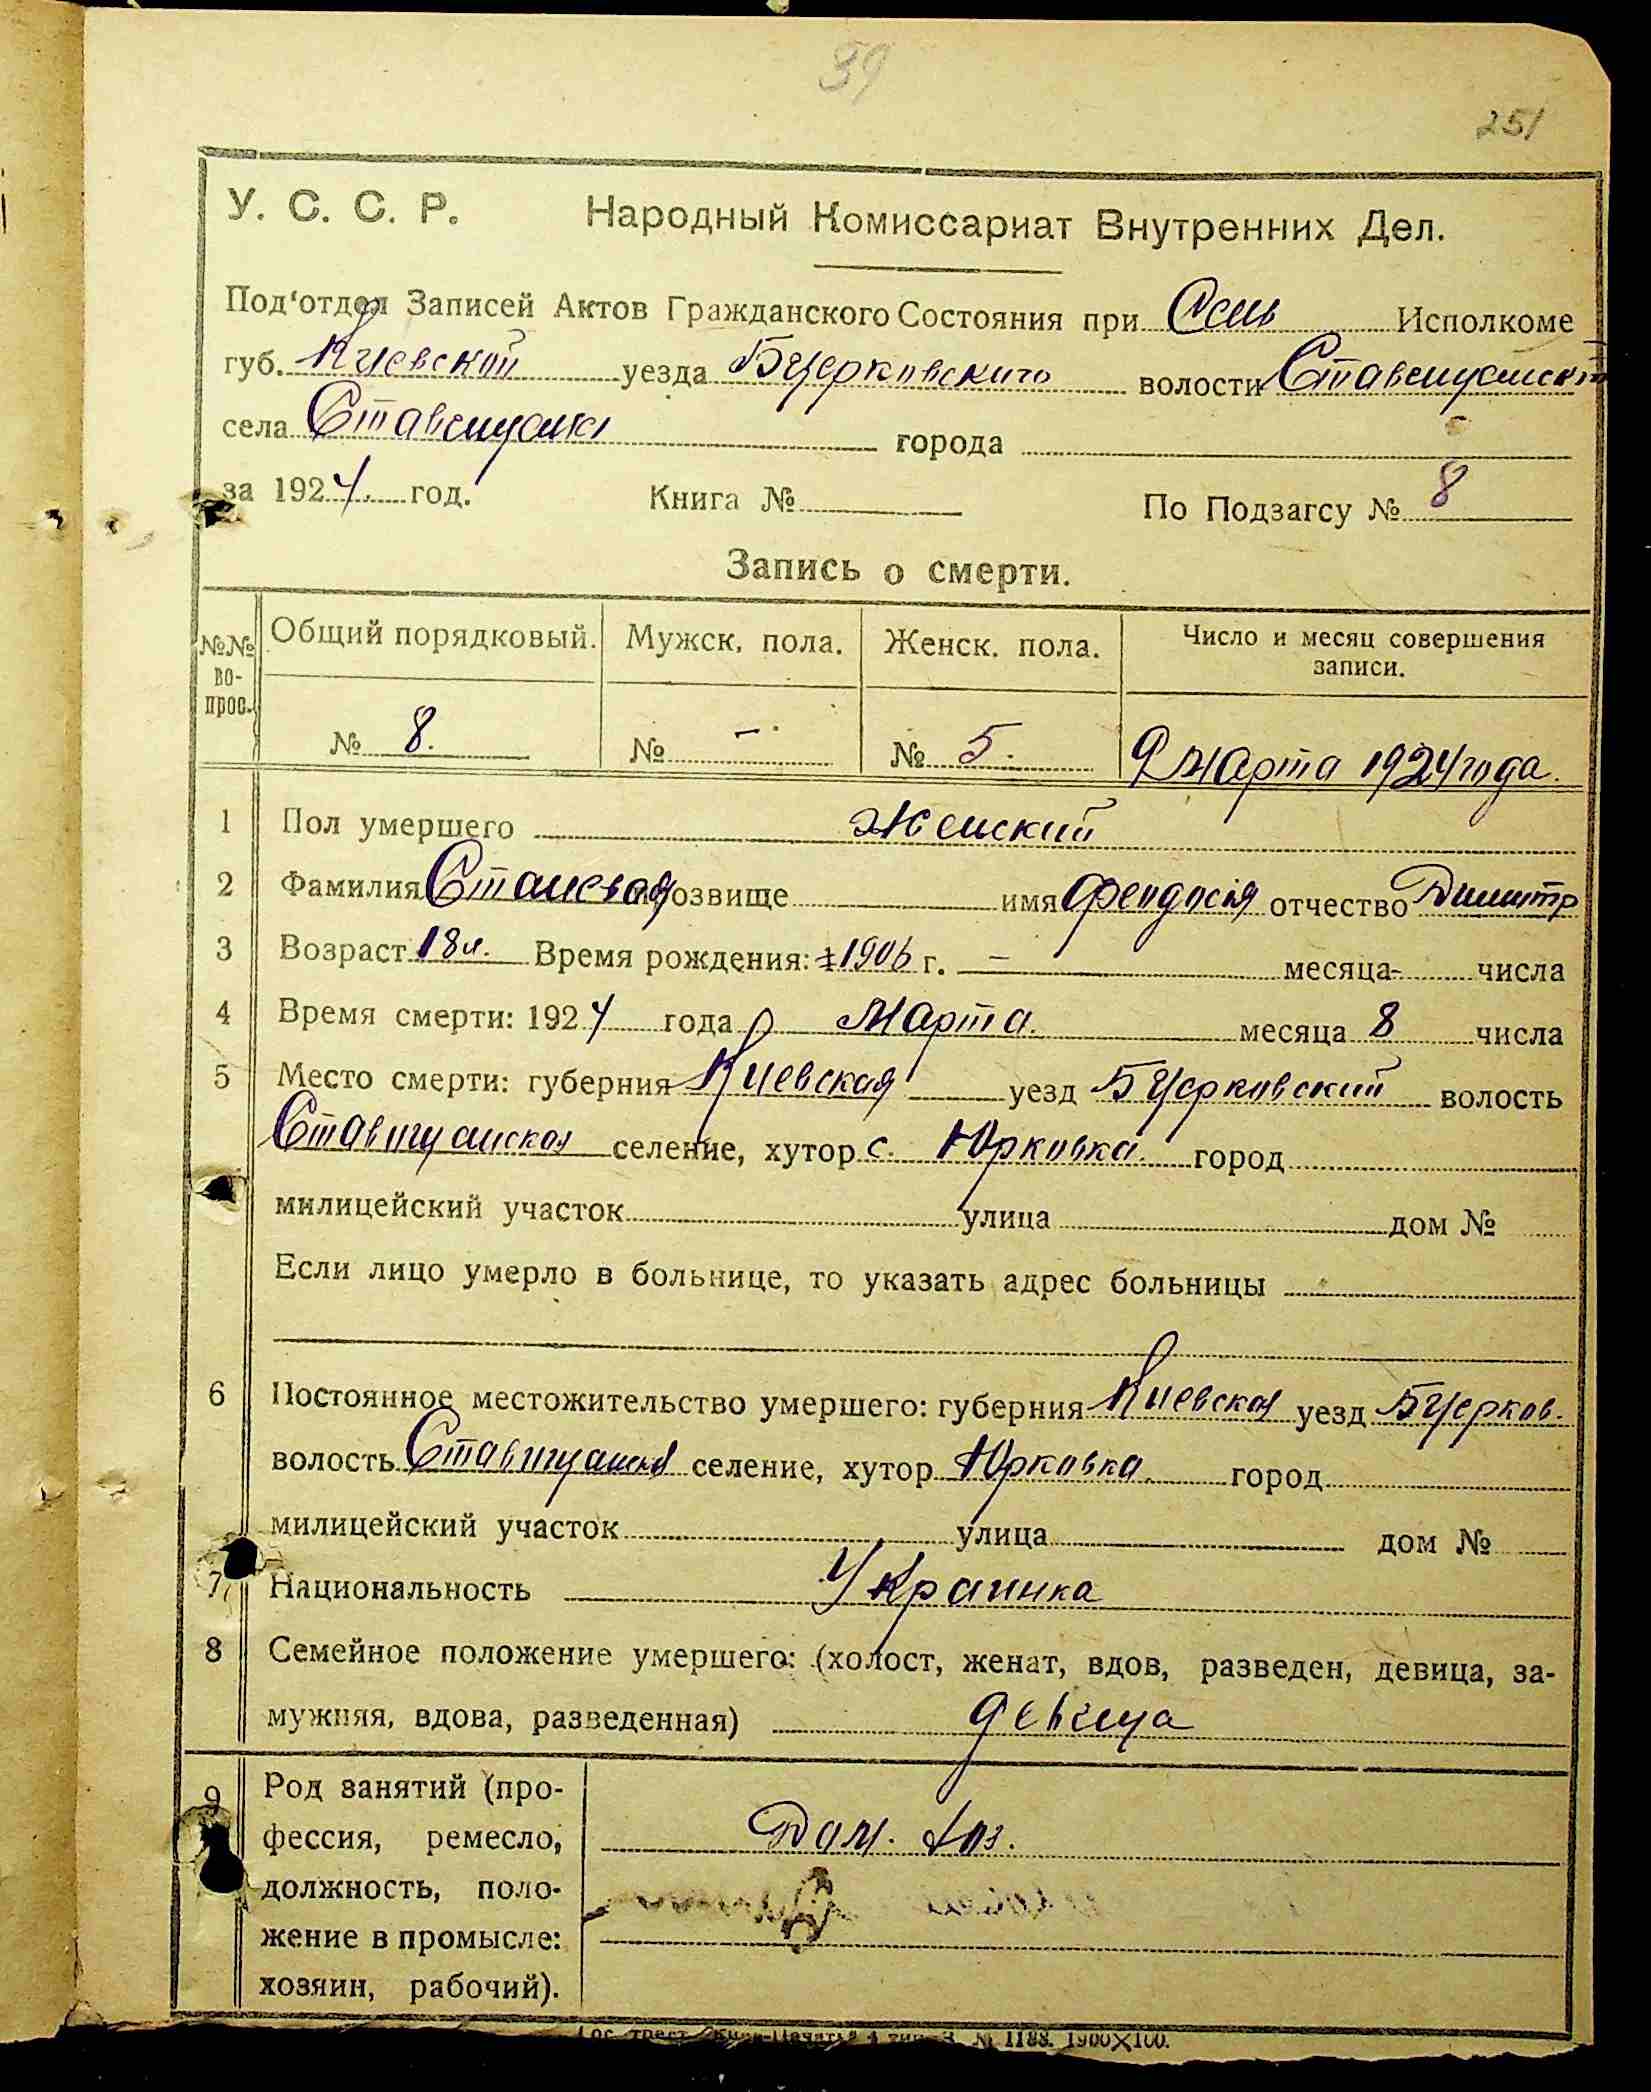 39
251
У. С. С. Р. Народный Комиссариат Внутренних Дел.
Под'отдел Записей Актов Гражданского Состояния при Сель Исполкоме
губ. Киевской уезда БЦерковского волости Ставищанской
села Ставищанки города
за 1924 год. Книга № По Подзагсу № 8
Запись о смерти.
№№ вопрос. Общий порядковый. Мужск. пола. Женск. пола. Число и месяц совершения записи.
№ 8. № — № 5. 9 Марта 1924 года.
1 Пол умершего Женский
2 Фамилия прозвище имя Феодосія отчество Димитр
3 Возраст 18 л. Время рождения: 1906 г. — месяца - числа
4 Время смерти: 1924 года Марта месяца 8 числа
5 Место смерти: губерния Киевская уезд БЦерковский волость
Ставищанская селение, хутор с. Юрковка город
милицейский участок улица дом №
Если лицо умерло в больнице, то указать адрес больницы
6 Постоянное местожительство умершего: губерния Киевская уезд БЦерков.
волость Ставищанская селение, хутор Юрковка город
милицейский участок улица дом №
7 Национальность Украинка
8 Семейное положение умершего: (холост, женат, вдов, разведен, девица, за-
мужняя, вдова, разведенная) девица
9 Род занятий (про-
фессия, ремесло, Дом. хоз.
должность, поло-
жение в промысле:
хозяин, рабочий).
№ 1188. 1900×100.